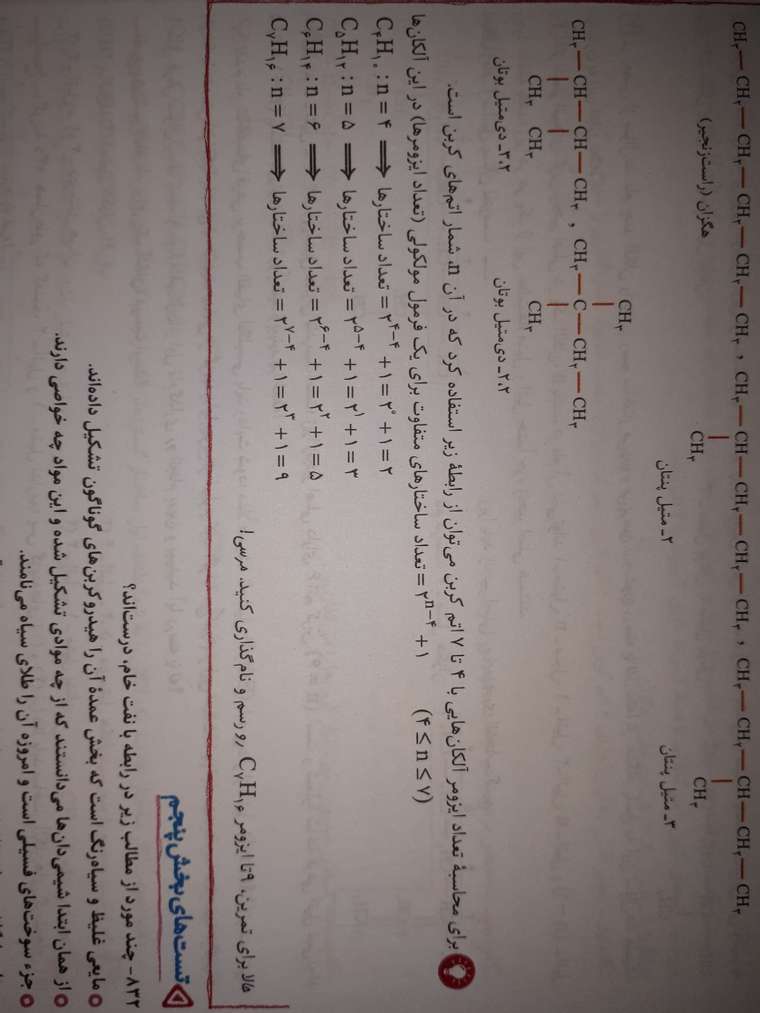 CH₃—CH₂—CH₂—CH₂—CH₂—CH₃ , CH₃—CH—CH₂—CH₂—CH₃ , CH₃—CH₂—CH—CH₂—CH₃
CH₃ CH₃
هگزان (راست‌زنجیر) ۲ـ متیل پنتان ۳ـ متیل پنتان
CH₃
CH₃—CH—CH—CH₃ , CH₃—C—CH₂—CH₃
CH₃ CH₃ CH₃
۲،۳ـ دی‌متیل بوتان ۲،۲ـ دی‌متیل بوتان
برای محاسبهٔ تعداد ایزومر آلکان‌هایی با ۴ تا ۷ اتم کربن می‌توان از رابطهٔ زیر استفاده کرد که در آن n، شمار اتم‌های کربن است.
(۴ ≤ n ≤ ۷) ۲ⁿ⁻⁴ + ۱ = تعداد ساختارهای متفاوت برای یک فرمول مولکولی (تعداد ایزومرها) در این آلکان‌ها
C₄H₁₀ : n = ۴ ⟹ تعداد ساختارها = ۲⁴⁻⁴ + ۱ = ۲⁰ + ۱ = ۲
C₅H₁₂ : n = ۵ ⟹ تعداد ساختارها = ۲⁵⁻⁴ + ۱ = ۲¹ + ۱ = ۳
C₆H₁₄ : n = ۶ ⟹ تعداد ساختارها = ۲⁶⁻⁴ + ۱ = ۲² + ۱ = ۵
C₇H₁₆ : n = ۷ ⟹ تعداد ساختارها = ۲⁷⁻⁴ + ۱ = ۲³ + ۱ = ۹
حالا برای تمرین، ۹ تا ایزومر C₇H₁₆ رو رسم و نام‌گذاری کنید. مرسی!
تست‌های بخش پنجم
۸۳۲- چند مورد از مطالب زیر در رابطه با نفت خام، درست‌اند؟
مایعی غلیظ و سیاه‌رنگ است که بخش عمدهٔ آن را هیدروکربن‌های گوناگون تشکیل داده‌اند.
از همان ابتدا شیمی‌دان‌ها می‌دانستند که از چه موادی تشکیل شده و این مواد چه خواصی دارند.
جزء سوخت‌های فسیلی است و امروزه آن را طلای سیاه می‌نامند.